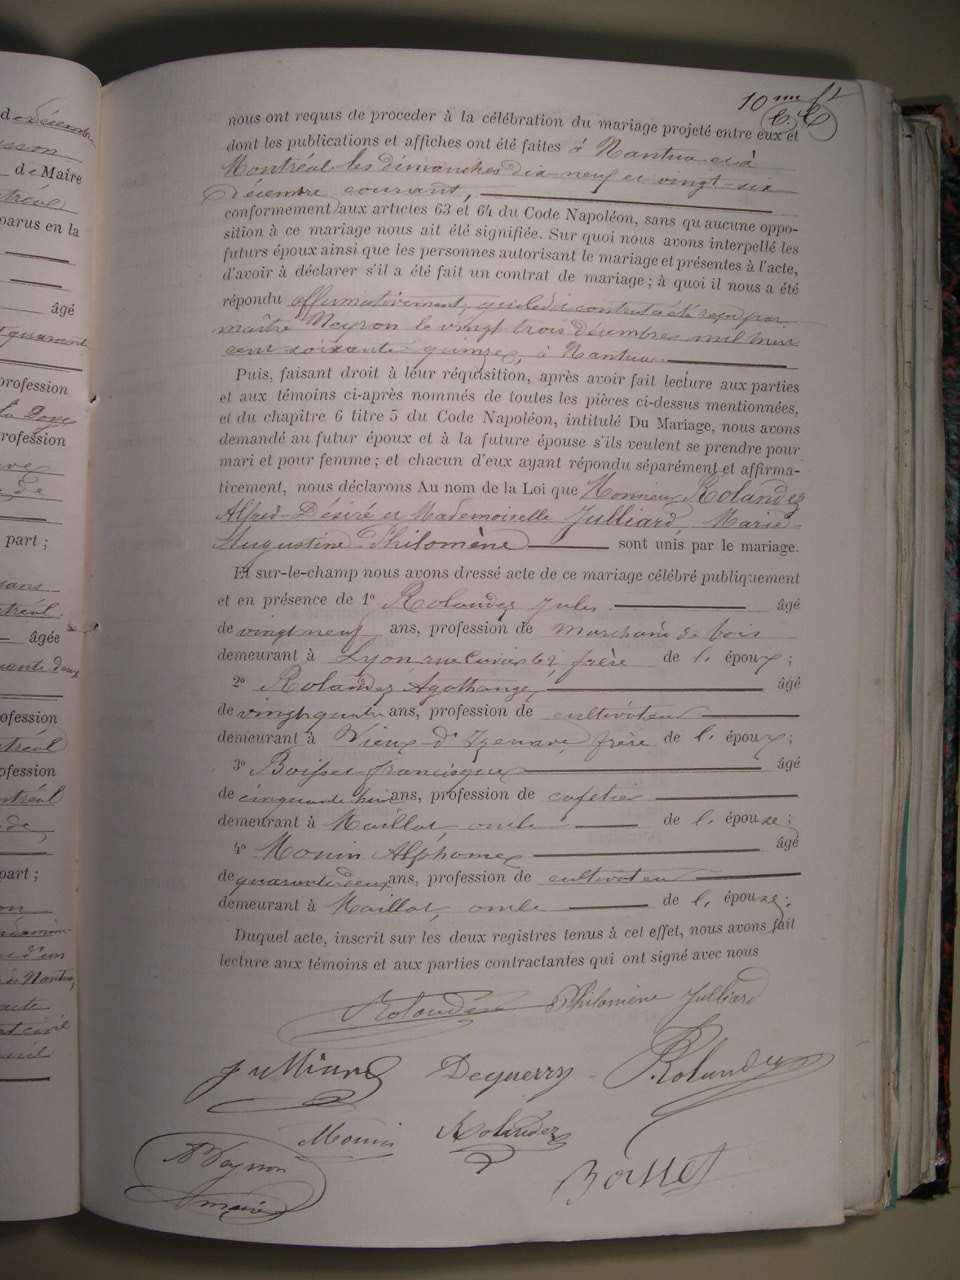 d décembre
sson
de Maire
tréal
parus en la
âgé
quarant
profession
la Doye
profession
part ;
tréal
âgée
quante deux
profession
tréal
ofession
ntréal
part ;
d'un
Nantua,
acte
civil
10me ft
nous ont requis de proceder à la célébration du mariage projeté entre eux et
dont les publications et affiches ont été faites à Nantua et à
Montréal les dimanches dix neuf et vingt-six
Décembre courant,
conformement aux articles 63 et 64 du Code Napoléon, sans qu'aucune oppo-
sition à ce mariage nous ait été signifiée. Sur quoi nous avons interpellé les
futurs époux ainsi que les personnes autorisant le mariage et présentes à l'acte,
d'avoir à déclarer s'il a été fait un contrat de mariage ; à quoi il nous a été
répondu affirmativement, que ledit contrat a été reçu par
maître Neyron le vingt trois décembre mil huit
cent soixante quinze, à Nantua.
Puis, faisant droit à leur réquisition, après avoir fait lecture aux parties
et aux témoins ci-après nommés de toutes les pièces ci-dessus mentionnées,
et du chapitre 6 titre 5 du Code Napoléon, intitulé Du Mariage, nous avons
demandé au futur époux et à la future épouse s'ils veulent se prendre pour
mari et pour femme ; et chacun d'eux ayant répondu séparément et affirma-
tivement, nous déclarons Au nom de la Loi que Monsieur Rolandez
Alfred-Désiré et Mademoiselle Julliard, Marie-
Augustine Philomène sont unis par le mariage.
Et sur-le-champ nous avons dressé acte de ce mariage célébré publiquement
et en présence de 1º Rolandez Jules âgé
de vingt neuf ans, profession de marchand de bois
demeurant à Lyon rue Cuvier 62, frère de l'époux ;
2º Rolandez Agothange âgé
de vingt quatre ans, profession de cultivateur
demeurant à Vieux-d'Izenave frère de l'époux ;
3º Boisset francisque âgé
de cinquante huit ans, profession de cafetier
demeurant à Maillat, oncle de l'épouse ;
4º Monin Alphonse âgé
de quarante deux ans, profession de cultivateur
demeurant à Maillat, oncle de l'épouse ;
Duquel acte, inscrit sur les deux registres tenus à cet effet, nous avons fait
lecture aux témoins et aux parties contractantes qui ont signé avec nous
Rolandez Philomène Julliard
Julliard Deguerry Rolandez
Monin Rolandez
Neyron Boisset
maire